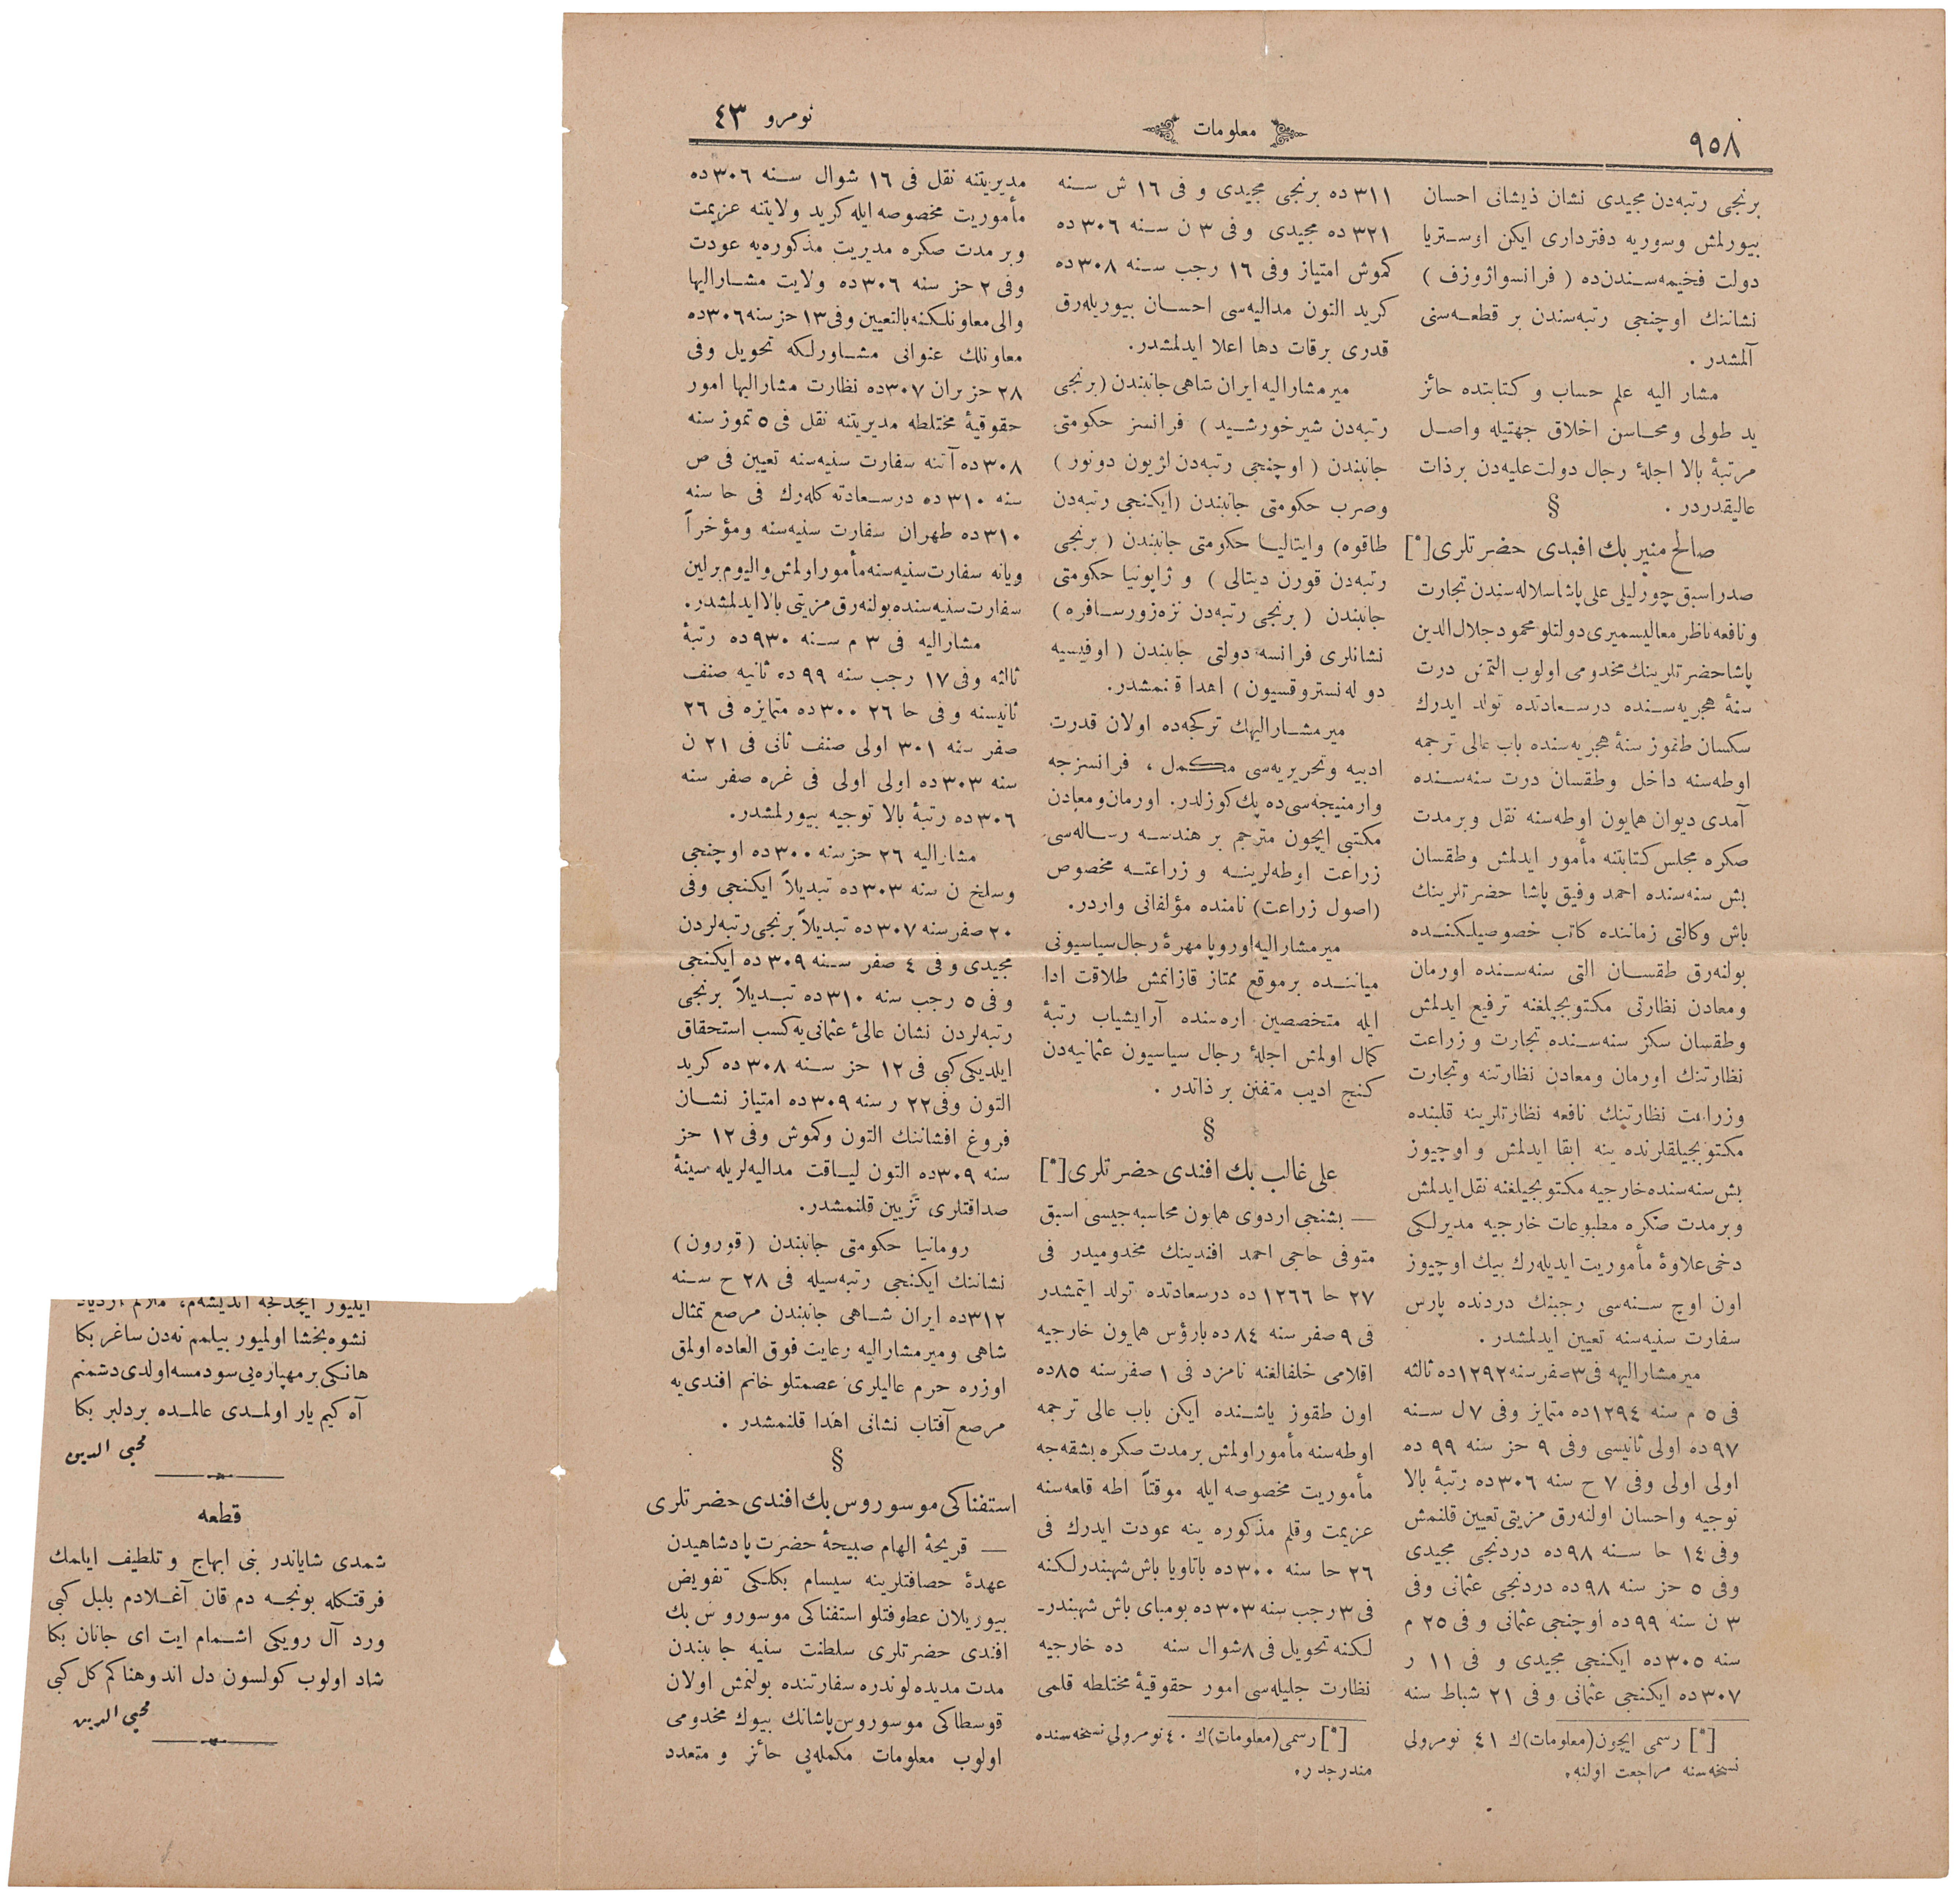 ٩٥٨
معلومات
نومرو ٤٣
برنجی رتبه‌دن مجیدی نشان ذیشانی احسان
بیورلمش وسوریه دفترداری ایکن اوستریا
دولت فخیمه‌سندن‌ده ( فرانسواژوزف )
نشاننك اوچنجی رتبه‌سندن بر قطعه‌سنی
آلمشدر .
مشار الیه علم حساب و کتابتده حائز
ید طولی ومحاسن اخلاق جهتیله واصل
مرتبهٔ بالا اجلهٔ رجال دولت علیه‌دن برذات
عالیقدردر .
§
صالح منیر بك افندی حضرتلری [*]
صدراسبق چورلیلی علی پاشا سلاله‌سندن تجارت
ونافعه ناظر معالیسمیری دولتلو محمود جلال‌الدین
پاشا حضرتلرینك مخدومی اولوب التمش درت
سنهٔ هجریه‌سنده درسعادتده تولد ایدرك
سکسان طقوز سنهٔ هجریه‌سنده باب عالی ترجمه
اوطه‌سنه داخل وطقسان درت سنه‌سنده
آمدی دیوان همایون اوطه‌سنه نقل وبرمدت
صکره مجلس کتابتنه مأمور ایدلمش وطقسان
بش سنه‌سنده احمد وفیق پاشا حضرتلرینك
باش وکالتی زماننده کاتب خصوصیلکنده
بولنه‌رق طقسان التی سنه‌سنده اورمان
ومعادن نظارتی مکتوبجیلغنه ترفیع ایدلمش
وطقسان سکز سنه‌سنده تجارت و زراعت
نظارتنك اورمان ومعادن نظارتنه وتجارت
وزراعت نظارتینك نافعه نظارتلرینه قلبنده
مکتوبجیلقلرنده ینه ابقا ایدلمش و اوچیوز
بش سنه‌سنده خارجیه مکتوبجیلغنه نقل ایدلمش
وبرمدت صکره مطبوعات خارجیه مدیرلکی
دخی علاوهٔ مأموریت ایدیله‌رك بیك اوچیوز
اون اوچ سنه‌سی رجبنك دردنده پارس
سفارت سنیه‌سنه تعیین ایدلمشدر .
میرمشارالیهه فی ٣ صفر سنه ١٢٩٢ده ثالثه
فی ٥ م سنه ١٢٩٤ده متمایز وفی ٧ ل سنه
٩٧ ده اولی ثانیسی وفی ٩ حز سنه ٩٩ ده
اولی اولی وفی ٧ ح سنه ٣٠٦ده رتبهٔ بالا
توجیه واحسان اولنه‌رق مزیتی تعیین قلنمش
وفی ١٤ حا سنه ٩٨ ده دردنجی مجیدی
وفی ٥ حز سنه ٩٨ ده دردنجی عثمانی وفی
٣ ن سنه ٩٩ ده اوچنجی عثمانی و فی ٢٥ م
سنه ٣٠٥ده ایکنجی مجیدی و فی ١١ ر
٣٠٧ده ایکنجی عثمانی و فی ٢١ شباط سنه
[*] رسمی ایچون (معلومات)ك ٤١ نومرولی
نسخه‌سنه مراجعت اولنه.
٣١١ ده برنجی مجیدی و فی ١٦ ش سنه
٣٢١ ده مجیدی وفی ٣ ن سنه ٣٠٦ ده
کموش امتیاز وفی ١٦ رجب سنه ٣٠٨ده
کرید التون مدالیه‌سی احسان بیوریله‌رق
قدری برقات دها اعلا ایدلمشدر.
میرمشارالیه ایران شاهی جانبندن (برنجی
رتبه‌دن شیرخورشید) فرانسز حکومتی
جانبندن ( اوچنجی رتبه‌دن لژیون دونور )
وصرب حکومتی جانبندن (ایکنجی رتبه‌دن
طاقوه) وایتالیا حکومتی جانبندن ( برنجی
رتبه‌دن قورن دیتالی ) و ژاپونیا حکومتی
جانبندن ( برنجی رتبه‌دن تره‌زورسافره )
نشانلری فرانسه دولتی جانبندن ( اوفیسیه
دو له‌نستروقسیون) اهدا قلنمشدر.
میرمشارالیهك ترکجه‌ده اولان قدرت
ادبیه وتحریریه‌سی مکمل ، فرانسزجه
وارمنیجه‌سی ده پك کوزلدر. اورمان ومعادن
مکتبی ایچون مترجم بر هندسه رساله‌سی
زراعت اوطه‌لرینه و زراعته مخصوص
(اصول زراعت) نامنده مؤلفاتی واردر.
میرمشارالیه اوروپا مهرهٔ رجال سیاسیونی
میاننده برموقع ممتاز قازانمش طلاقت ادا
ایله متخصصین اره‌سنده آرایشیاب رتبهٔ
کمال اولمش اجلهٔ رجال سیاسیون عثمانیه‌دن
کنج ادیب متفنن بر ذاتدر .
§
علی غالب بك افندی حضرتلری [*]
— بشنجی اردوی همایون محاسبه‌جیسی اسبق
متوفی حاجی احمد افندینك مخدومیدر فی
٢٧ حا ١٢٦٦ ده درسعادتده تولد ایتمشدر
فی ٩ صفر سنه ٨٤ ده بارؤس همایون خارجیه
اقلامی خلفالغنه نامزد فی ١ صفر سنه ٨٥ده
اون طقوز یاشنده ایکن باب عالی ترجمه
اوطه‌سنه مأمور اولمش برمدت صکره بشقه‌جه
مأموریت مخصوصه ایله موقتاً اطه قلعه‌سنه
عزیمت وقلم مذکوره ینه عودت ایدرك فی
٢٦ حا سنه ٣٠٠ده باتاویا باش شهبندرلکنه
فی ٣ رجب سنه ٣٠٣ ده بومبای باش شهبندر-
لکنه تحویل فی ٨ شوال سنه ده خارجیه
نظارت جلیله‌سی امور حقوقیهٔ مختلطه قلمی
[*] رسمی (معلومات)ك ٤٠ نومرولی نسخه‌سنده
مندرجدر.
مدیریتنه نقل فی ١٦ شوال سنه ٣٠٦ده
مأموریت مخصوصه ایله کرید ولایتنه عزیمت
وبر مدت صکره مدیریت مذکوره‌یه عودت
وفی ٢ حز سنه ٣٠٦ ده ولایت مشارالیها
والی معاونلکنه بالتعیین وفی ١٣ حز سنه ٣٠٦ده
معاونلك عنوانی مشاورلکه تحویل وفی
٢٨ حزیران ٣٠٧ده نظارت مشارالیها امور
حقوقیهٔ مختلطه مدیریتنه نقل فی ٥ تموز سنه
٣٠٨ ده آتنه سفارت سنیه‌سنه تعیین فی ص
سنه ٣١٠ ده درسعادته کله‌رك فی حا سنه
٣١٠ده طهران سفارت سنیه‌سنه ومؤخراً
ویانه سفارت سنیه‌سنه مأمور اولمش والیوم برلین
سفارت سنیه‌سنده بولنه‌رق مزیتی بالا ایدلمشدر.
مشارالیه فی ٣ م سنه ٩٣٠ ده رتبهٔ
ثالثه وفی ١٧ رجب سنه ٩٩ ده ثانیه صنف
ثانیسنه و فی حا ٢٦ ٣٠٠ ده متمایزه فی ٢٦
صفر سنه ٣٠١ اولی صنف ثانی فی ٢١ ن
سنه ٣٠٣ ده اولی اولی فی غره صفر سنه
٣٠٦ ده رتبهٔ بالا توجیه بیورلمشدر.
مشارالیه ٢٦ حز سنه ٣٠٠ ده اوچنجی
وسلخ ن سنه ٣٠٣ ده تبدیلاً ایکنجی وفی
٢٠ صفر سنه ٣٠٧ ده تبدیلاً برنجی رتبه‌لردن
مجیدی و فی ٤ صفر سنه ٣٠٩ ده ایکنجی
و فی ٥ رجب سنه ٣١٠ ده تبدیلاً برنجی
رتبه‌لردن نشان عالئ عثمانی‌یه کسب استحقاق
ایلدیکی کبی فی ١٢ حز سنه ٣٠٨ ده کرید
التون وفی ٢٢ ر سنه ٣٠٩ ده امتیاز نشان
فروغ افشاننك التون وکموش وفی ١٢ حز
سنه ٣٠٩ده التون لیاقت مدالیه‌لریله سینهٔ
صداقتلری تزیین قلنمشدر.
رومانیا حکومتی جانبندن ( قورون )
نشاننك ایکنجی رتبه‌سیله فی ٢٨ ح سنه
٣١٢ده ایران شاهی جانبندن مرصع تمثال
شاهی ومیرمشارالیه رعایت فوق العاده اولمق
اوزره حرم عالیلری عصمتلو خانم افندی‌یه
مرصع آفتاب نشانی اهدا قلنمشدر .
§
استفناکی موسوروس بك افندی حضرتلری
— قریحهٔ الهام صبیحهٔ حضرت پادشاهیدن
عهدهٔ حصافتلرینه سیسام بکلکی تفویض
بیوریلان عطوفتلو استفناکی موسوروس بك
افندی حضرتلری سلطنت سنیه جانبندن
مدت مدیده لوندره سفارتنده بولنمش اولان
قوسطاکی موسوروس پاشانك بیوك مخدومی
اولوب معلومات مکمله‌یی حائز و متعدد
نشوه‌بخشا اولمیور بیلمم نه‌دن ساغر بکا
هانکی بر مهپاره‌یی سودمسه اولدی دشمنم
آه کیم یار اولمدی عالمده بردلبر بکا
محیی الدین
قطعه
شمدی شایاندر بنی ابهاج و تلطیف ایلمك
فرقتکله بونجه دم قان آغلادم بلبل کبی
ورد آل رویکی اشمام ایت ای جانان بکا
شاد اولوب کولسون دل اندوهناکم کل کبی
محیی الدین